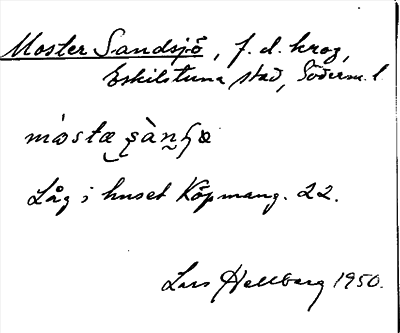 Moster Sandsjö, f. d. krog,
Eskilstuna stad, Söderm. l.
Låg i huset Köpmang. 22.
Lars Hellberg 1950.